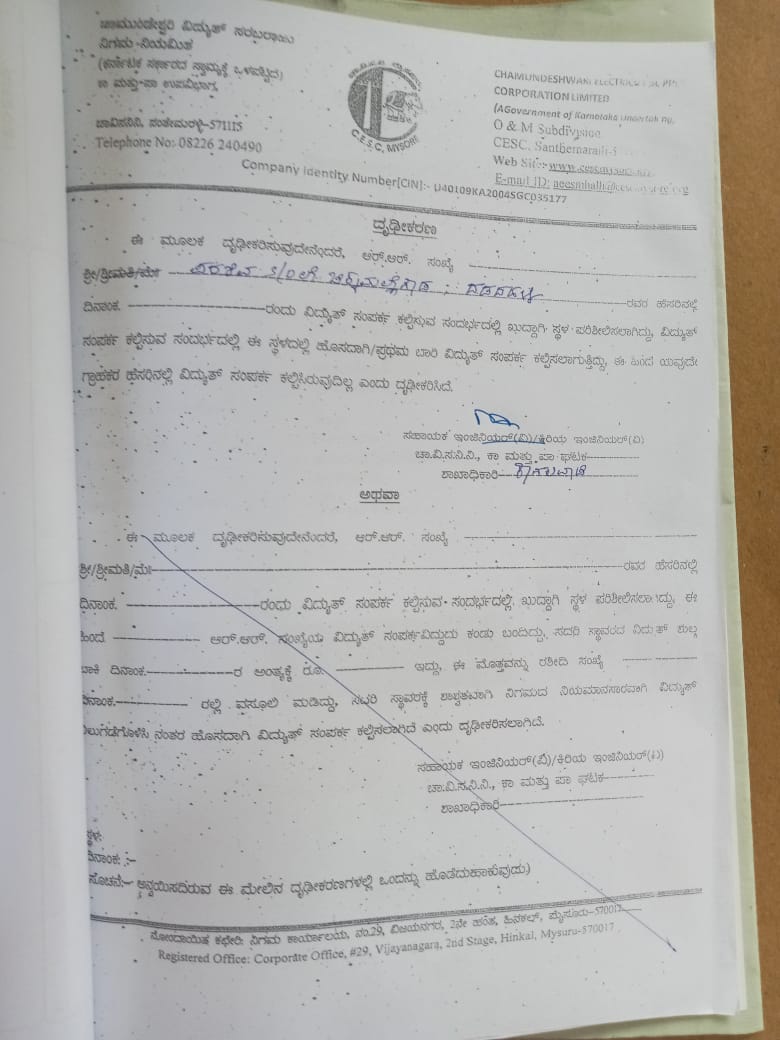 ಚಾಮುಂಡೇಶ್ವರಿ ವಿದ್ಯುತ್ ಸರಬರಾಜು
ನಿಗಮ-ನಿಯಮಿತ
(ಕರ್ನಾಟಕ ಸರ್ಕಾರದ ಸ್ವಾಮ್ಯಕ್ಕೆ ಒಳಪಟ್ಟಿದ)
ಕಾ ಮತ್ತು-ಪಾ ಉಪವಿಭಾಗ,
ಚಾವಿಸನಿನಿ, ಸಂತೇಮರಳ್ಳಿ-571115
Telephone No: 08226 240490
C.E.S.C, MYSORE
CHAMUNDESHWARI ELECTRICITY
CORPORATION LIMITED
(AGovernment of Karnataka
O & M Subdivision
CESC, Santhemaralli
Web Site:
E-mail ID:
Company Identity Number[CIN]:- U40109KA2004SGC035177
ದೃಢೀಕರಣ
ಈ ಮೂಲಕ ದೃಢೀಕರಿಸುವುದೇನೆಂದರೆ, ಆರ್.ಆರ್. ಸಂಖ್ಯೆ
ಶ್ರೀ/ಶ್ರೀಮತಿ/ಮೇ S/O ರವರ ಹೆಸರಿನಲ್ಲಿ
ದಿನಾಂಕ. ರಂದು ವಿದ್ಯುತ್ ಸಂಪರ್ಕ ಕಲ್ಪಿಸುವ ಸಂದರ್ಭದಲ್ಲಿ ಖುದ್ದಾಗಿ ಸ್ಥಳ ಪರಿಶೀಲಿಸಲಾಗಿದ್ದು, ವಿದ್ಯುತ್
ಸಂಪರ್ಕ ಕಲ್ಪಿಸುವ ಸಂದರ್ಭದಲ್ಲಿ ಈ ಸ್ಥಳದಲ್ಲಿ ಹೊಸದಾಗಿ/ಪ್ರಥಮ ಬಾರಿ ವಿದ್ಯುತ್ ಸಂಪರ್ಕ ಕಲ್ಪಿಸಲಾಗುತ್ತಿದ್ದು, ಈ ಹಿಂದೆ ಯಾವುದೇ
ಗ್ರಾಹಕರ ಹೆಸರಿನಲ್ಲಿ ವಿದ್ಯುತ್ ಸಂಪರ್ಕ ಕಲ್ಪಿಸಿರುವುದಿಲ್ಲ ಎಂದು ದೃಢೀಕರಿಸಿದೆ.
ಸಹಾಯಕ ಇಂಜಿನಿಯರ್(ವಿ)/ಕಿರಿಯ ಇಂಜಿನಿಯರ್(ವಿ)
ಚಾ.ವಿ.ಸ.ನಿ.ನಿ., ಕಾ ಮತ್ತು ಪಾ ಘಟಕ
ಶಾಖಾಧಿಕಾರಿ
ಅಥವಾ
ಈ ಮೂಲಕ ದೃಢೀಕರಿಸುವುದೇನೆಂದರೆ, ಆರ್.ಆರ್. ಸಂಖ್ಯೆ
ಶ್ರೀ/ಶ್ರೀಮತಿ/ಮೆ ರವರ ಹೆಸರಿನಲ್ಲಿ
ದಿನಾಂಕ. ರಂದು ವಿದ್ಯುತ್ ಸಂಪರ್ಕ ಕಲ್ಪಿಸುವ ಸಂದರ್ಭದಲ್ಲಿ ಖುದ್ದಾಗಿ ಸ್ಥಳ ಪರಿಶೀಲಿಸಲಾಗಿದ್ದು, ಈ
ಹಿಂದೆ ಆರ್.ಆರ್. ಸಂಖ್ಯೆಯ ವಿದ್ಯುತ್ ಸಂಪರ್ಕವಿದ್ದುದು ಕಂಡು ಬಂದಿದ್ದು, ಸದರಿ ಸ್ಥಾವರದ ವಿದ್ಯುತ್ ಶುಲ್ಕ
ಬಾಕಿ ದಿನಾಂಕ. ರ ಅಂತ್ಯಕ್ಕೆ ರೂ. ಇದ್ದು, ಈ ಮೊತ್ತವನ್ನು ರಶೀದಿ ಸಂಖ್ಯೆ
ದಿನಾಂಕ. ರಲ್ಲಿ ವಸೂಲಿ ಮಾಡಿದ್ದು, ಸದರಿ ಸ್ಥಾವರಕ್ಕೆ ಶಾಶ್ವತವಾಗಿ ನಿಗಮದ ನಿಯಮಾನಸಾರವಾಗಿ ವಿದ್ಯುತ್
ನಂತರ ಹೊಸದಾಗಿ ವಿದ್ಯುತ್ ಸಂಪರ್ಕ ಕಲ್ಪಿಸಲಾಗಿದೆ ಎಂದು ದೃಢೀಕರಿಸಲಾಗಿದೆ.
ಸಹಾಯಕ ಇಂಜಿನಿಯರ್(ವಿ)/ಕಿರಿಯ ಇಂಜಿನಿಯರ್(ವಿ)
ಚಾ.ವಿ.ಸ.ನಿ.ನಿ., ಕಾ ಮತ್ತು ಪಾ ಘಟಕ
ಶಾಖಾಧಿಕಾರಿ
ಸ್ಥಳ:
ದಿನಾಂಕ: :-
ಸೂಚನೆ:- ಅನ್ವಯಿಸದಿರುವ ಈ ಮೇಲಿನ ದೃಢೀಕರಣಗಳಲ್ಲಿ ಒಂದನ್ನು ಹೊಡೆದುಹಾಕುವುದು)
ನೋಂದಾಯಿತ ಕಛೇರಿ: ನಿಗಮ ಕಾರ್ಯಾಲಯ, ನಂ.29, ವಿಜಯನಗರ, 2ನೇ ಹಂತ, ಹಿನಕಲ್, ಮೈಸೂರು-570017
Registered Office: Corporate Office, #29, Vijayanagara, 2nd Stage, Hinkal, Mysuru-570017